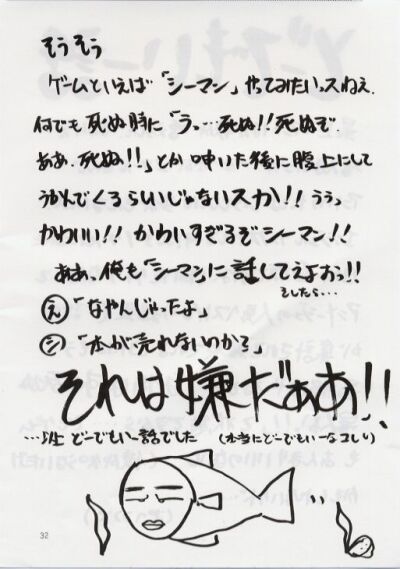 そうそう
ゲームといえば「シーマン」やってみたいっスねえ.
何でも死ぬ時に「うっ…死ぬ!!死ぬぞ
ああ、死ぬ!!」とか呻いた後に腹上にして
うかんでくるらしいじゃないスか!!ううっ
かわいい!!かわいすぎるぞシーマン!!
ああ、俺も「シーマン」に話してえよおっ!!
そしたら…
え「なやんじゃったよ」
シ「本が売れないのかる」
それは嫌だぁあ!!
…以上 どーでもいー話でした (本当にどーでもいーなコレ)
32